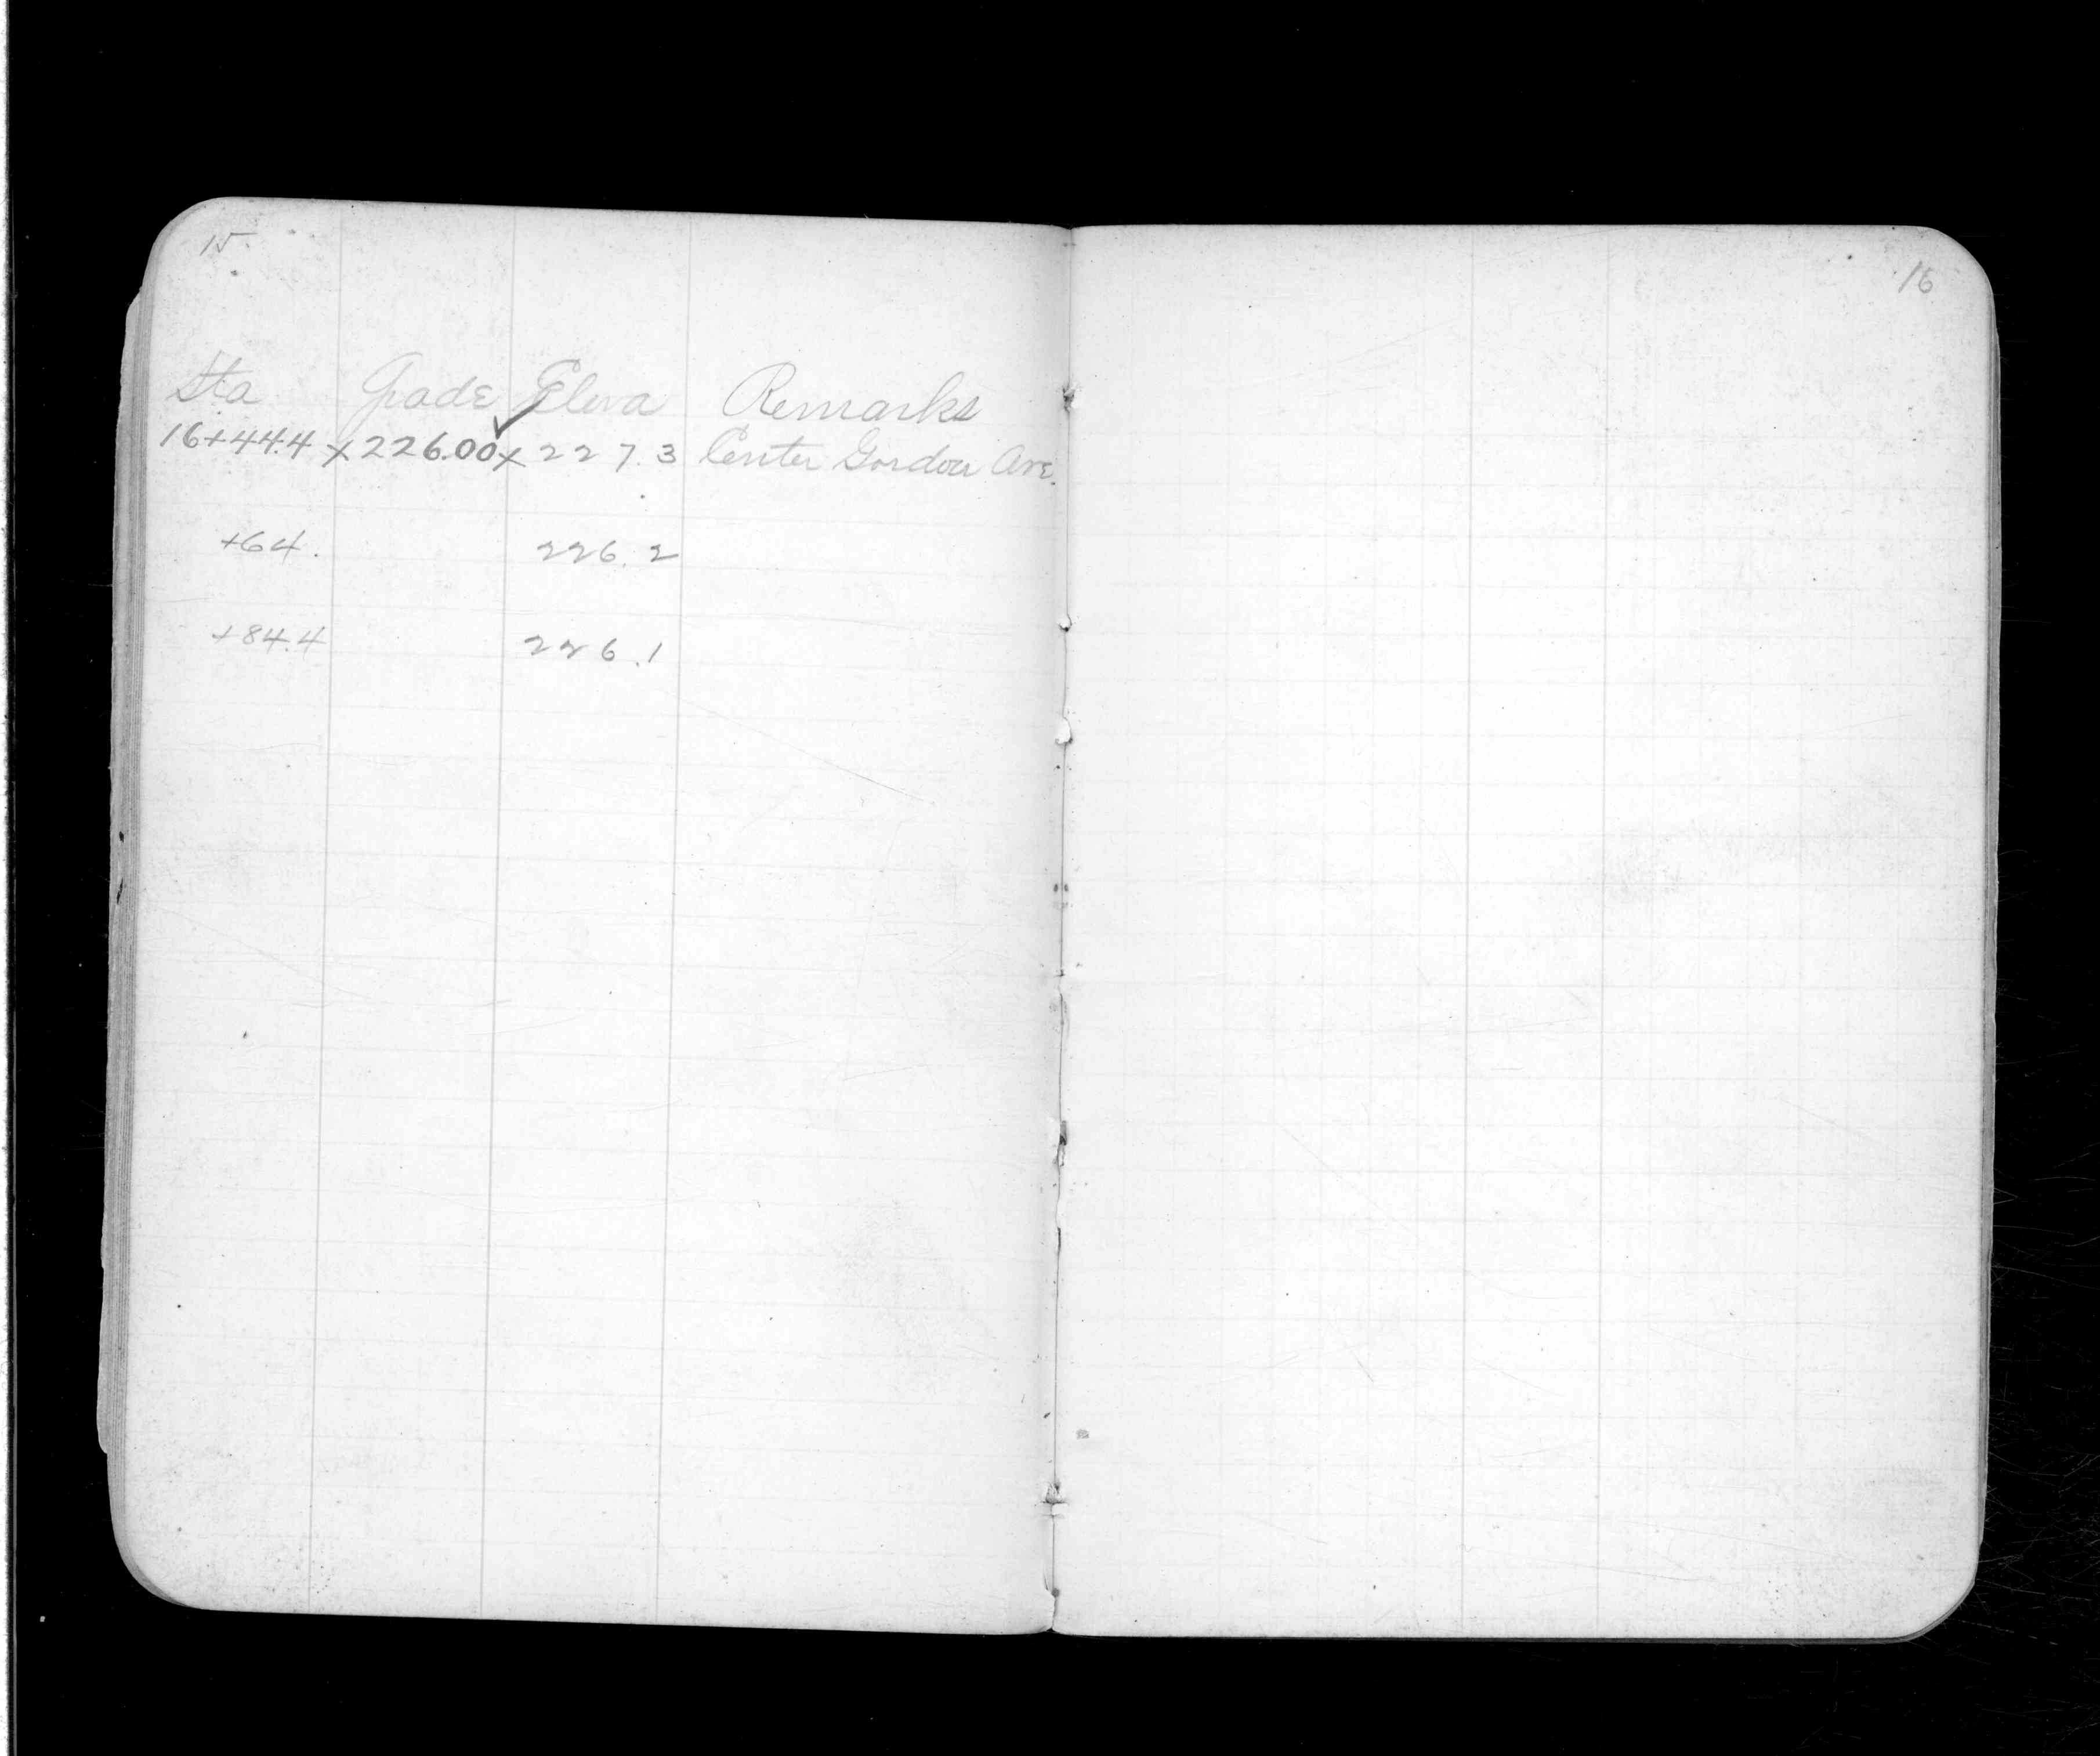 15.
Sta Grade Eleva Remarks
16+44.4 x 226.00 ✓ x 227.3 Center Gordon Ave.
+64. 226.2
+84.4 226.1
16